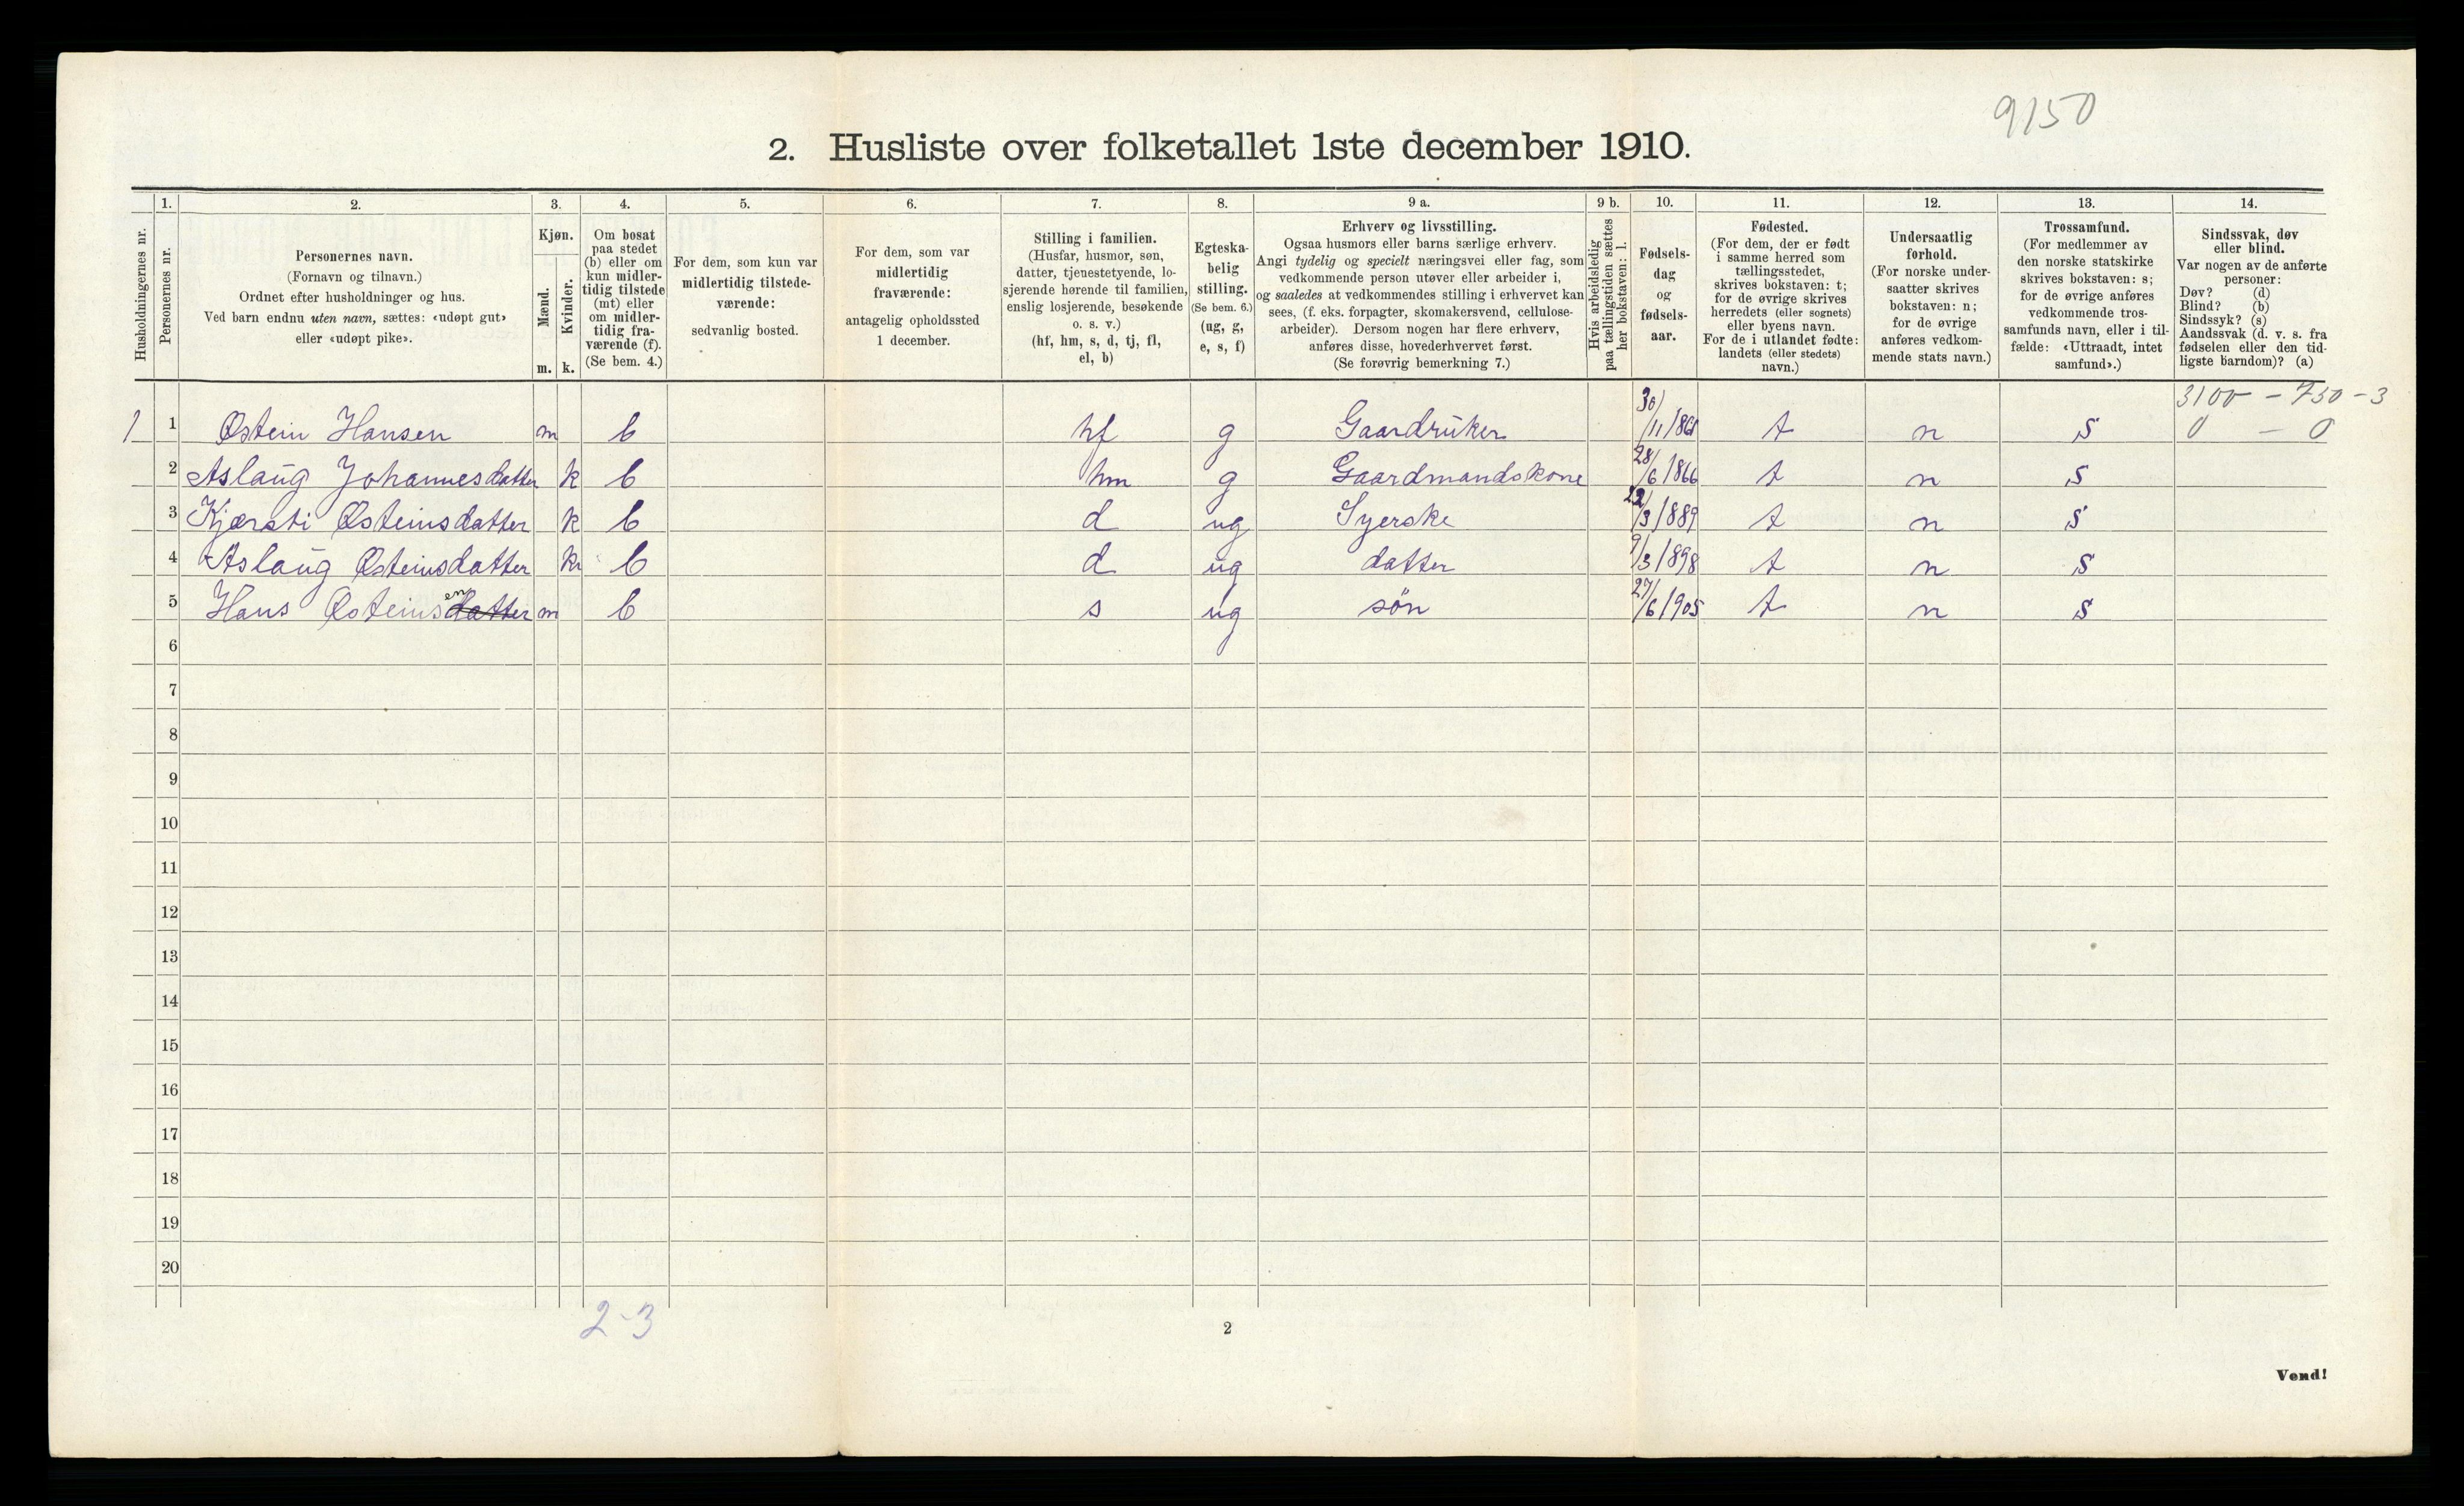 9150
2. Husliste over folketallet 1ste december 1910.
Husholdningernes nr.
1.
Personernes nr.
2.
Personernes navn.
(Fornavn og tilnavn.)
Ordnet efter husholdninger og hus.
Ved barn endnu uten navn, sættes: «udøpt gut»
eller «udøpt pike».
3.
Kjøn.
Mænd.
Kvinder.
m. k.
4.
Om bosat
paa stedet
(b) eller om
kun midler-
tidig tilstede
(mt) eller
om midler-
tidig fra-
værende (f).
(Se bem. 4.)
5.
For dem, som kun var
midlertidig tilstede-
værende:
sedvanlig bosted.
6.
For dem, som var
midlertidig
fraværende:
antagelig opholdssted
1 december.
7.
Stilling i familien.
(Husfar, husmor, søn,
datter, tjenestetyende, lo-
sjerende hørende til familien,
enslig losjerende, besøkende
o. s. v.)
(hf, hm, s, d, tj, fl,
el, b)
8.
Egteska-
belig
stilling.
(Se bem. 6.)
(ug, g,
e, s, f)
9 a.
Erhverv og livsstilling.
Ogsaa husmors eller barns særlige erhverv.
Angi tydelig og specielt næringsvei eller fag, som
vedkommende person utøver eller arbeider i,
og saaledes at vedkommendes stilling i erhvervet kan
sees, (f. eks. forpagter, skomakersvend, cellulose-
arbeider). Dersom nogen har flere erhverv,
anføres disse, hovederhvervet først.
(Se forøvrig bemerkning 7.)
9 b.
Hvis arbeidsledig
paa tællingstiden sættes
her bokstaven: l.
10.
Fødsels-
dag
og
fødsels-
aar.
11.
Fødested.
(For dem, der er født
i samme herred som
tællingsstedet,
skrives bokstaven: t;
for de øvrige skrives
herredets (eller sognets)
eller byens navn.
For de i utlandet fødte:
landets (eller stedets)
navn.)
12.
Undersaatlig
forhold.
(For norske under-
saatter skrives
bokstaven: n;
for de øvrige
anføres vedkom-
mende stats navn.)
13.
Trossamfund.
(For medlemmer av
den norske statskirke
skrives bokstaven: s;
for de øvrige anføres
vedkommende tros-
samfunds navn, eller i til-
fælde: «Uttraadt, intet
samfund».)
14.
Sindssvak, døv
eller blind.
Var nogen av de anførte
personer:
Døv? (d)
Blind? (b)
Sindssyk? (s)
Aandssvak (d. v. s. fra
fødselen eller den tid-
ligste barndom)? (a)
3100 - 750 - 3
1 1 Østein Hansen m b hf g Gaardrüker 30/11 1861 t n s 0 - 0
2 Aslaug Johannesdatter k b hm g Gaardmandskone 28/6 1866 t n s
3 Kjærsti Østeinsdatter k b d ug Syerske 22/3 1889 t n s
4 Aslaug Østeinsdatter k b d ug datter 9/3 1898 t n s
5 Hans Østeinsdatter en m b s ug søn 27/6 1905 t n s
6
7
8
9
10
11
12
13
14
15
16
17
18
19
20
2-3
2
Vend!